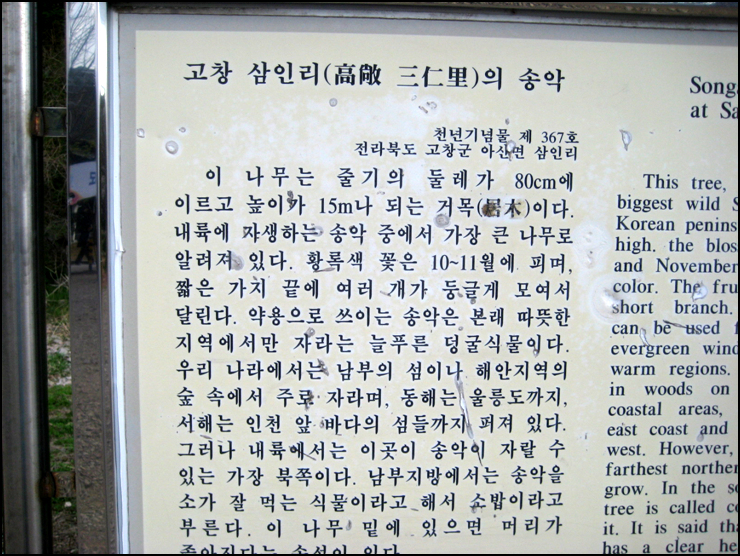 고창 삼인리(高敞 三仁里)의 송악
천년기념물 제 367호
전라북도 고창군 아산면 삼인리
이 나무는 줄기의 둘레가 80cm에
이르고 높이가 15m나 되는 거목( 木)이다.
내륙에 자생하는 송악 중에서 가장 큰 나무로
알려져 있다. 황록색 꽃은 10~11월에 피며,
짧은 가치 끝에 여러 개가 둥글게 모여서
달린다. 약용으로 쓰이는 송악은 본래 따뜻한
지역에서만 자라는 늘푸른 덩굴식물이다.
우리 나라에서는 남부의 섬이나 해안지역의
숲 속에서 주로 자라며, 동해는 울릉도까지,
서해는 인천 앞 바다의 섬들까지 퍼져 있다.
그러나 내륙에서는 이곳이 송악이 자랄 수
있는 가장 북쪽이다. 남부지방에서는 송악을
소가 잘 먹는 식물이라고 해서 소밥이라고
부른다. 이 나무 밑에 있으면 머리가
좋아진다는 속설이 있다.
Songa
at Sa
This tree,
biggest wild S
Korean penins
high. the blos
and November
color. The fru
short branch.
can be used f
evergreen wind
warm regions.
in woods on
coastal areas,
east coast and
west. However,
farthest norther
grow. In the so
tree is called c
it. It is said tha
has a clear he